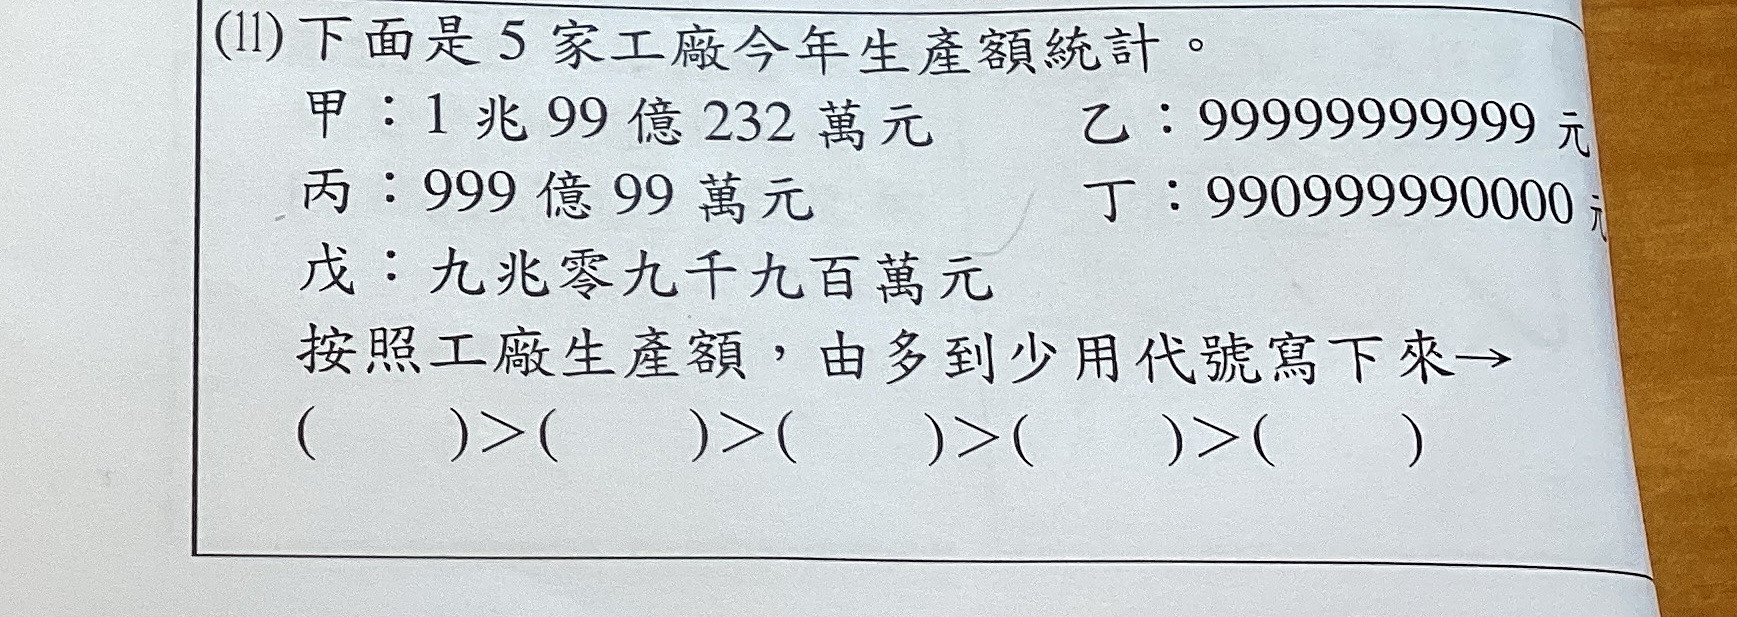 (11)下面是 5 家工廠今年生產額統計。
甲：1 兆 99 億 232 萬元　　乙：99999999999 元
丙：999 億 99 萬元　　丁：990999990000 元
戊：九兆零九千九百萬元
按照工廠生產額，由多到少用代號寫下來→
(　　)＞(　　)＞(　　)＞(　　)＞(　　)